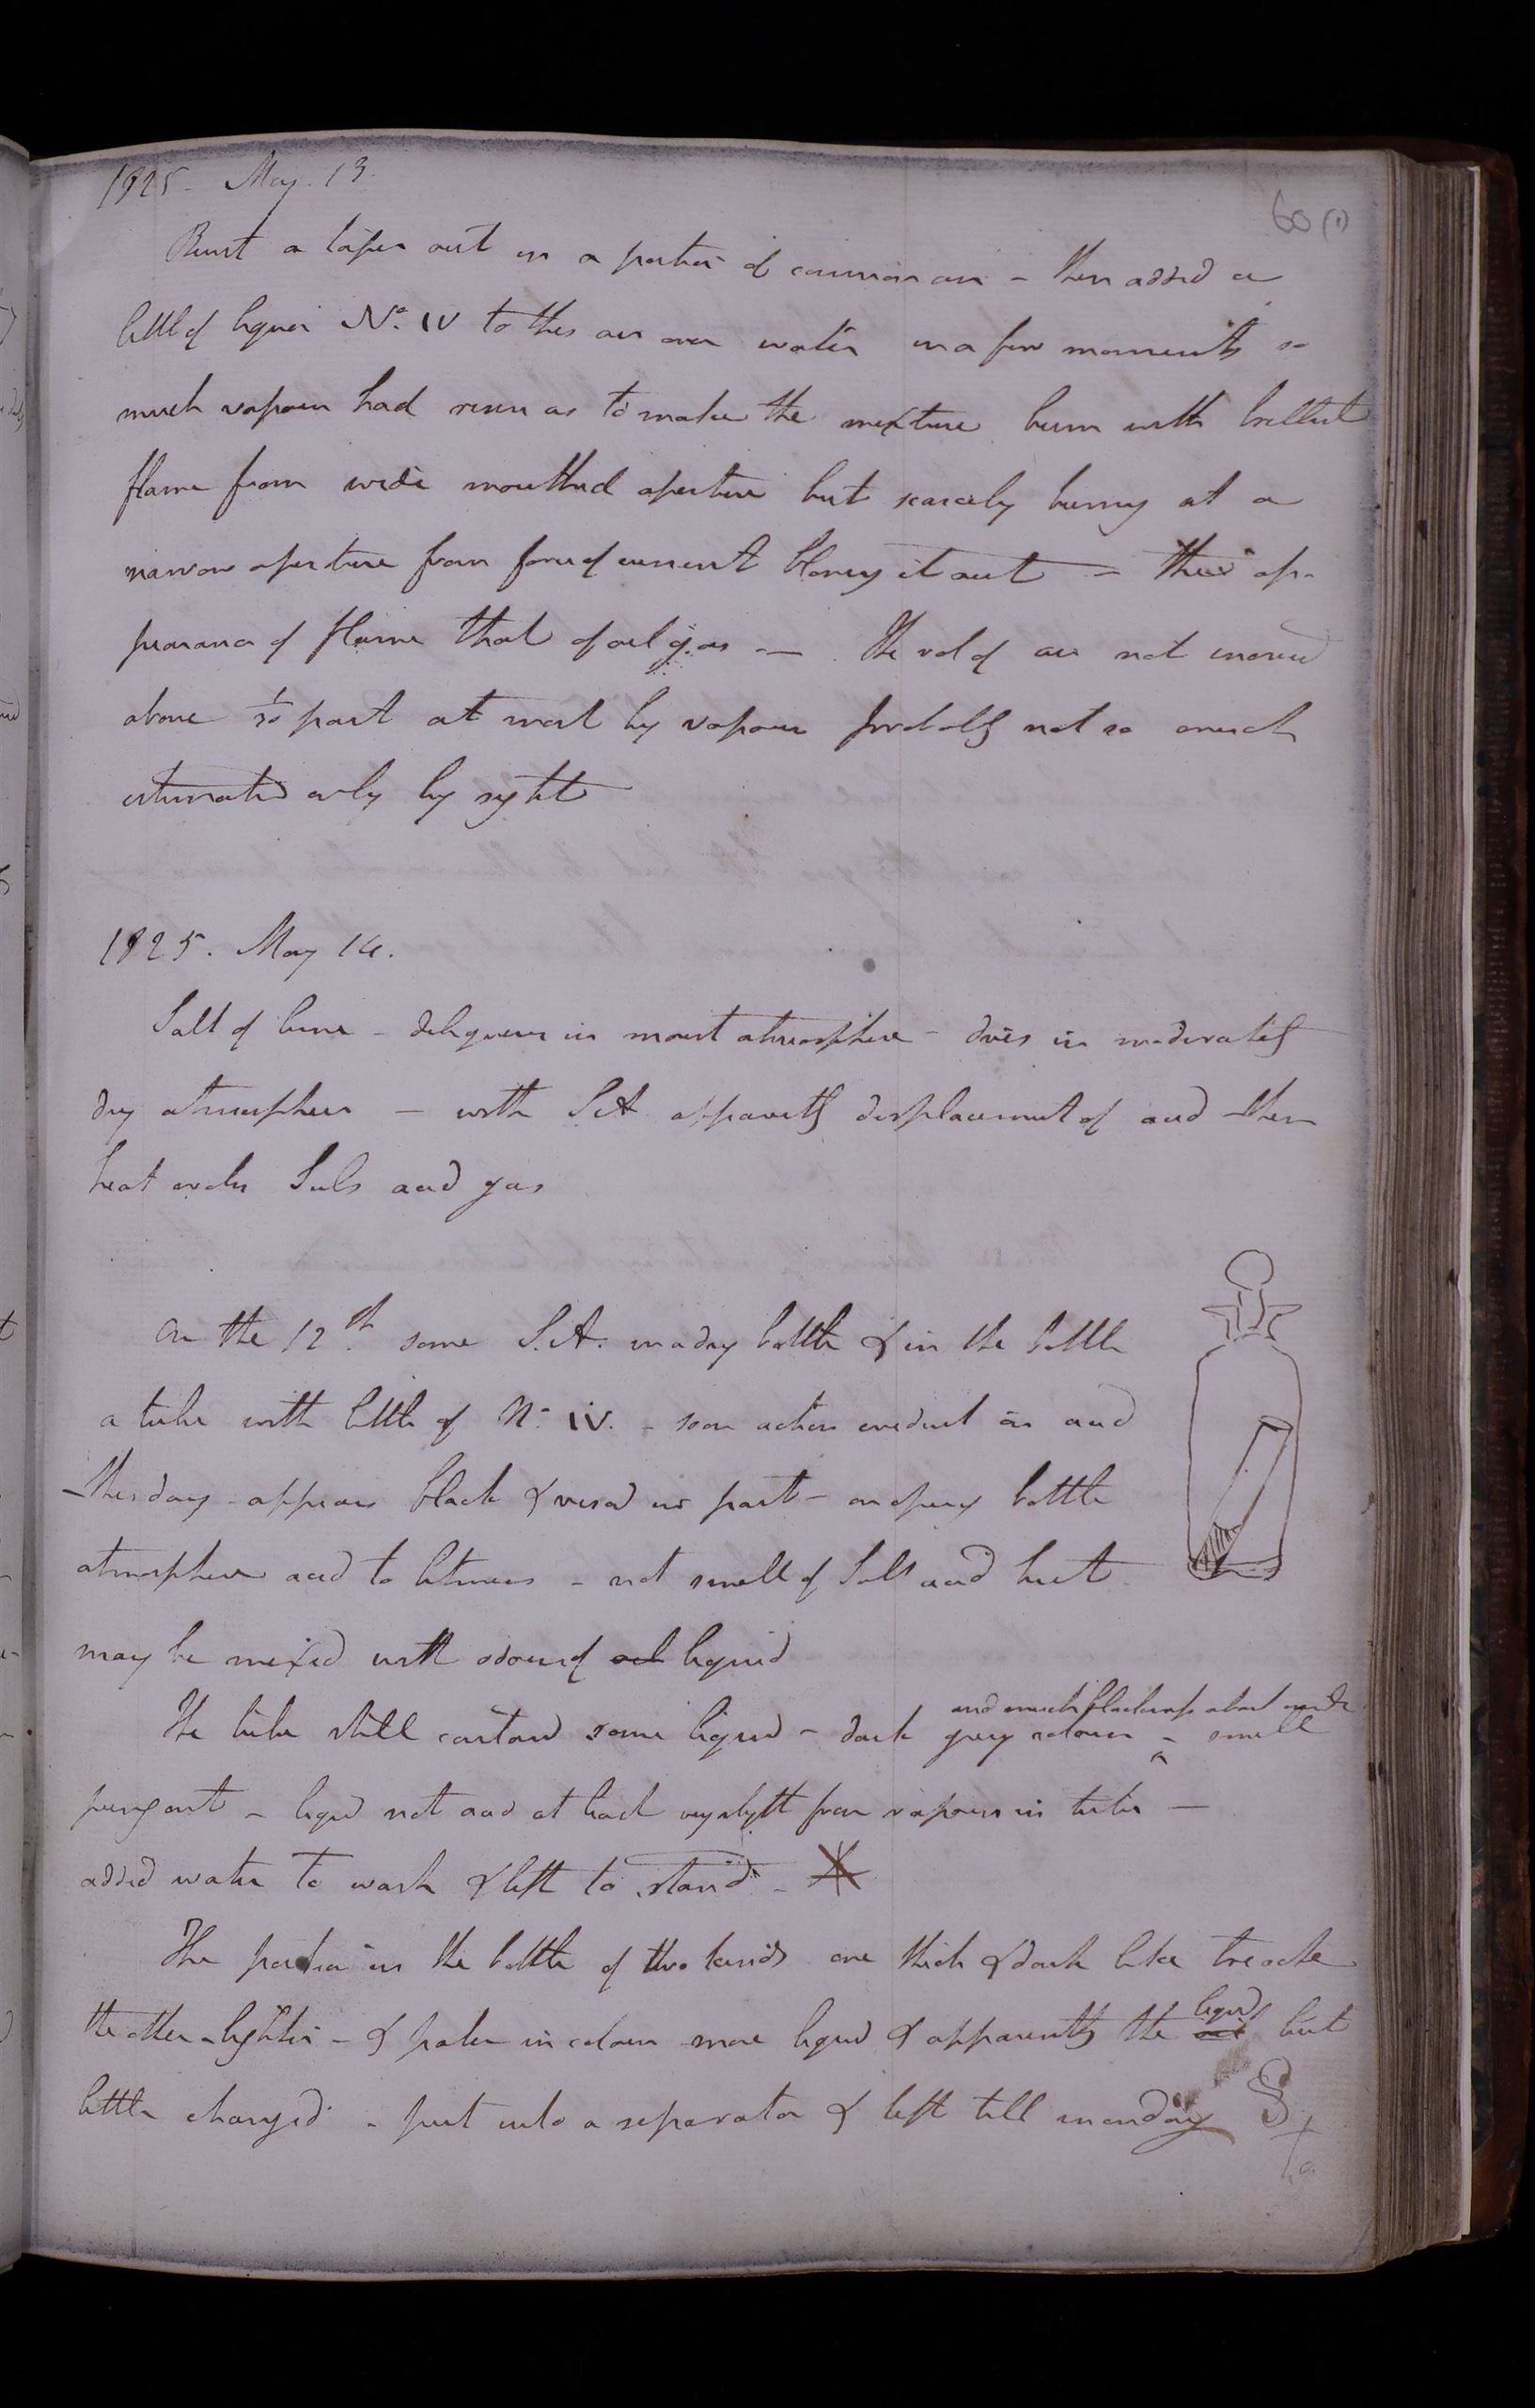 1825. May. 13.
60 (1)
Burnt a taper out in a portion of common air - then added a
little of liquor No. IV to this air over water in a few moments so
much vapour had risen as to make the mixture burn with brilliant
flame from wide mouthed aperture but scarcely burning at a
narrow aperture from force of current blowing it out - the ap-
pearance of flame that of oil gas - The vol of air not increased
above 1/50 part at most by vapour probably not so much
estimated only by sight
1825. May 14.
Salt of lime - deliquesces in moist atmosphere - dries in moderately
dry atmosphere - with S.A. apparently displacement of acid then
heat evolves Sul acid gas
On the 12th some S.A. in a dry bottle & in the bottle
a tube with little of No. IV. - soon action evident on acid
this day - appears black & viscid in part - on opening bottle
atmosphere acid to litmus - not smell of Sul acid but
may be mixed with odour of oil liquid
and much blackness about
The tube still contained some liquid - dark grey colour - smell
pungent - liquid not acid at least very slight from vapours in tube -
added water to wash & left to stand -
The portion in the bottle of two kinds one thick & dark like treacle
liquid
the other lighter - & paler in colour more liquid & apparently the oil but
little changed - put into a separator & left till monday